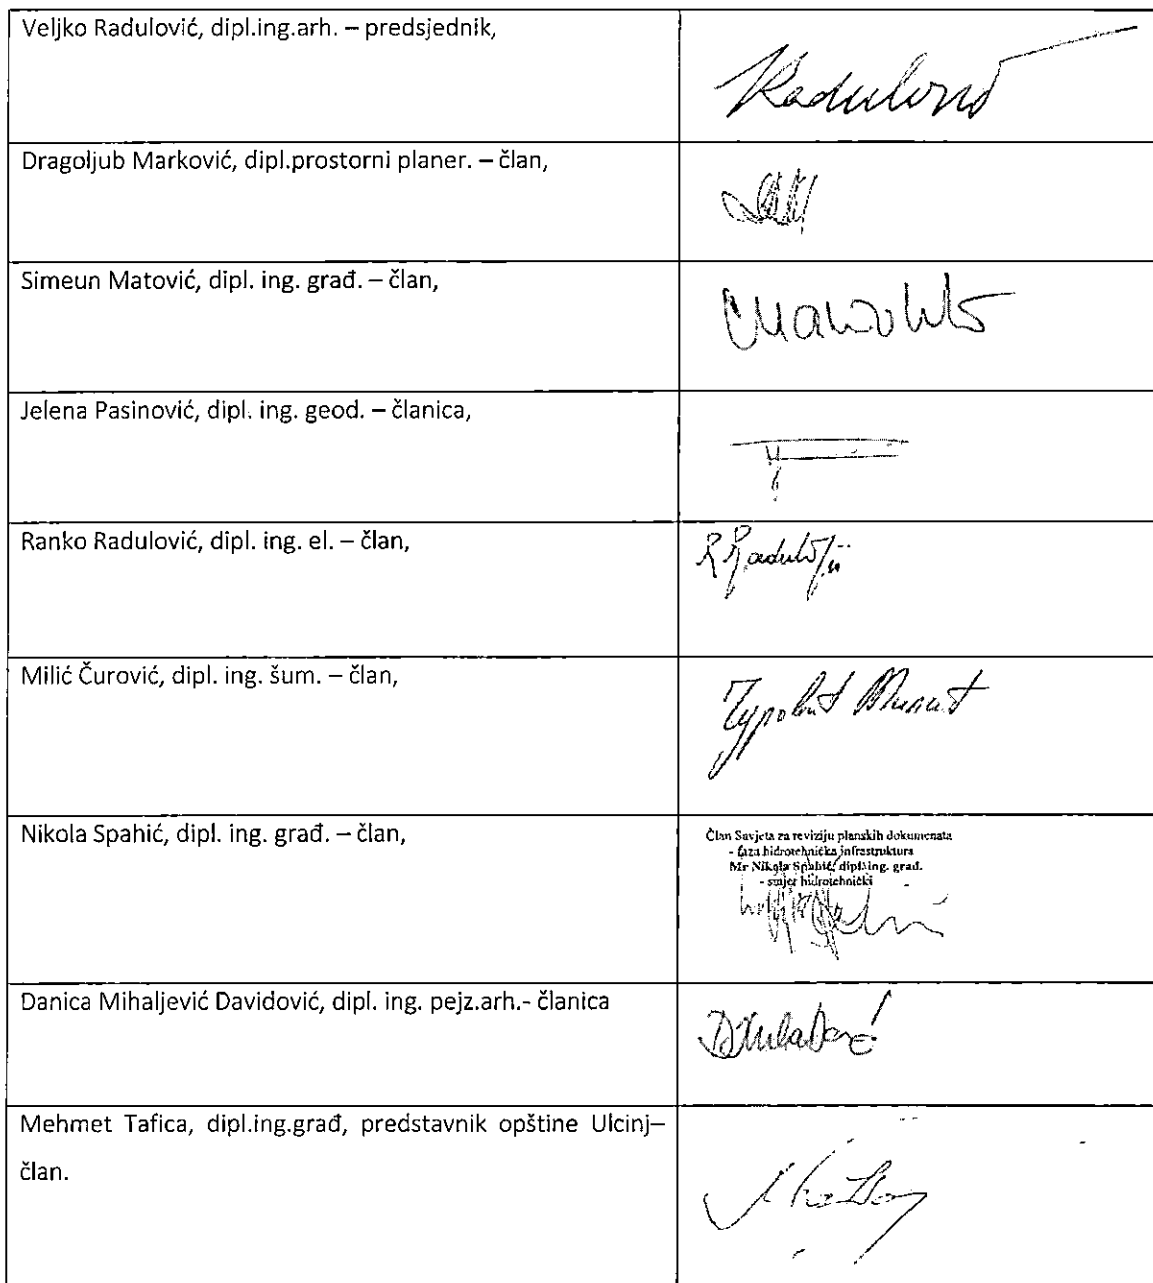 Veljko Radulović, dipl.ing.arh. – predsjednik,
Radulović
Dragoljub Marković, dipl.prostorni planer. – član,
Simeun Matović, dipl. ing. građ. – član,
Jelena Pasinović, dipl. ing. geod. – članica,
Ranko Radulović, dipl. ing. el. – član,
Milić Čurović, dipl. ing. šum. – član,
Nikola Spahić, dipl. ing. građ. – član,
Član Savjeta za reviziju planskih dokumenata
- faza hidrotehnička infrastruktura
Mr Nikola Spahić, dipl.ing. građ.
- smjer hidrotehnički
Danica Mihaljević Davidović, dipl. ing. pejz.arh.- članica
Mehmet Tafica, dipl.ing.građ, predstavnik opštine Ulcinj–
član.